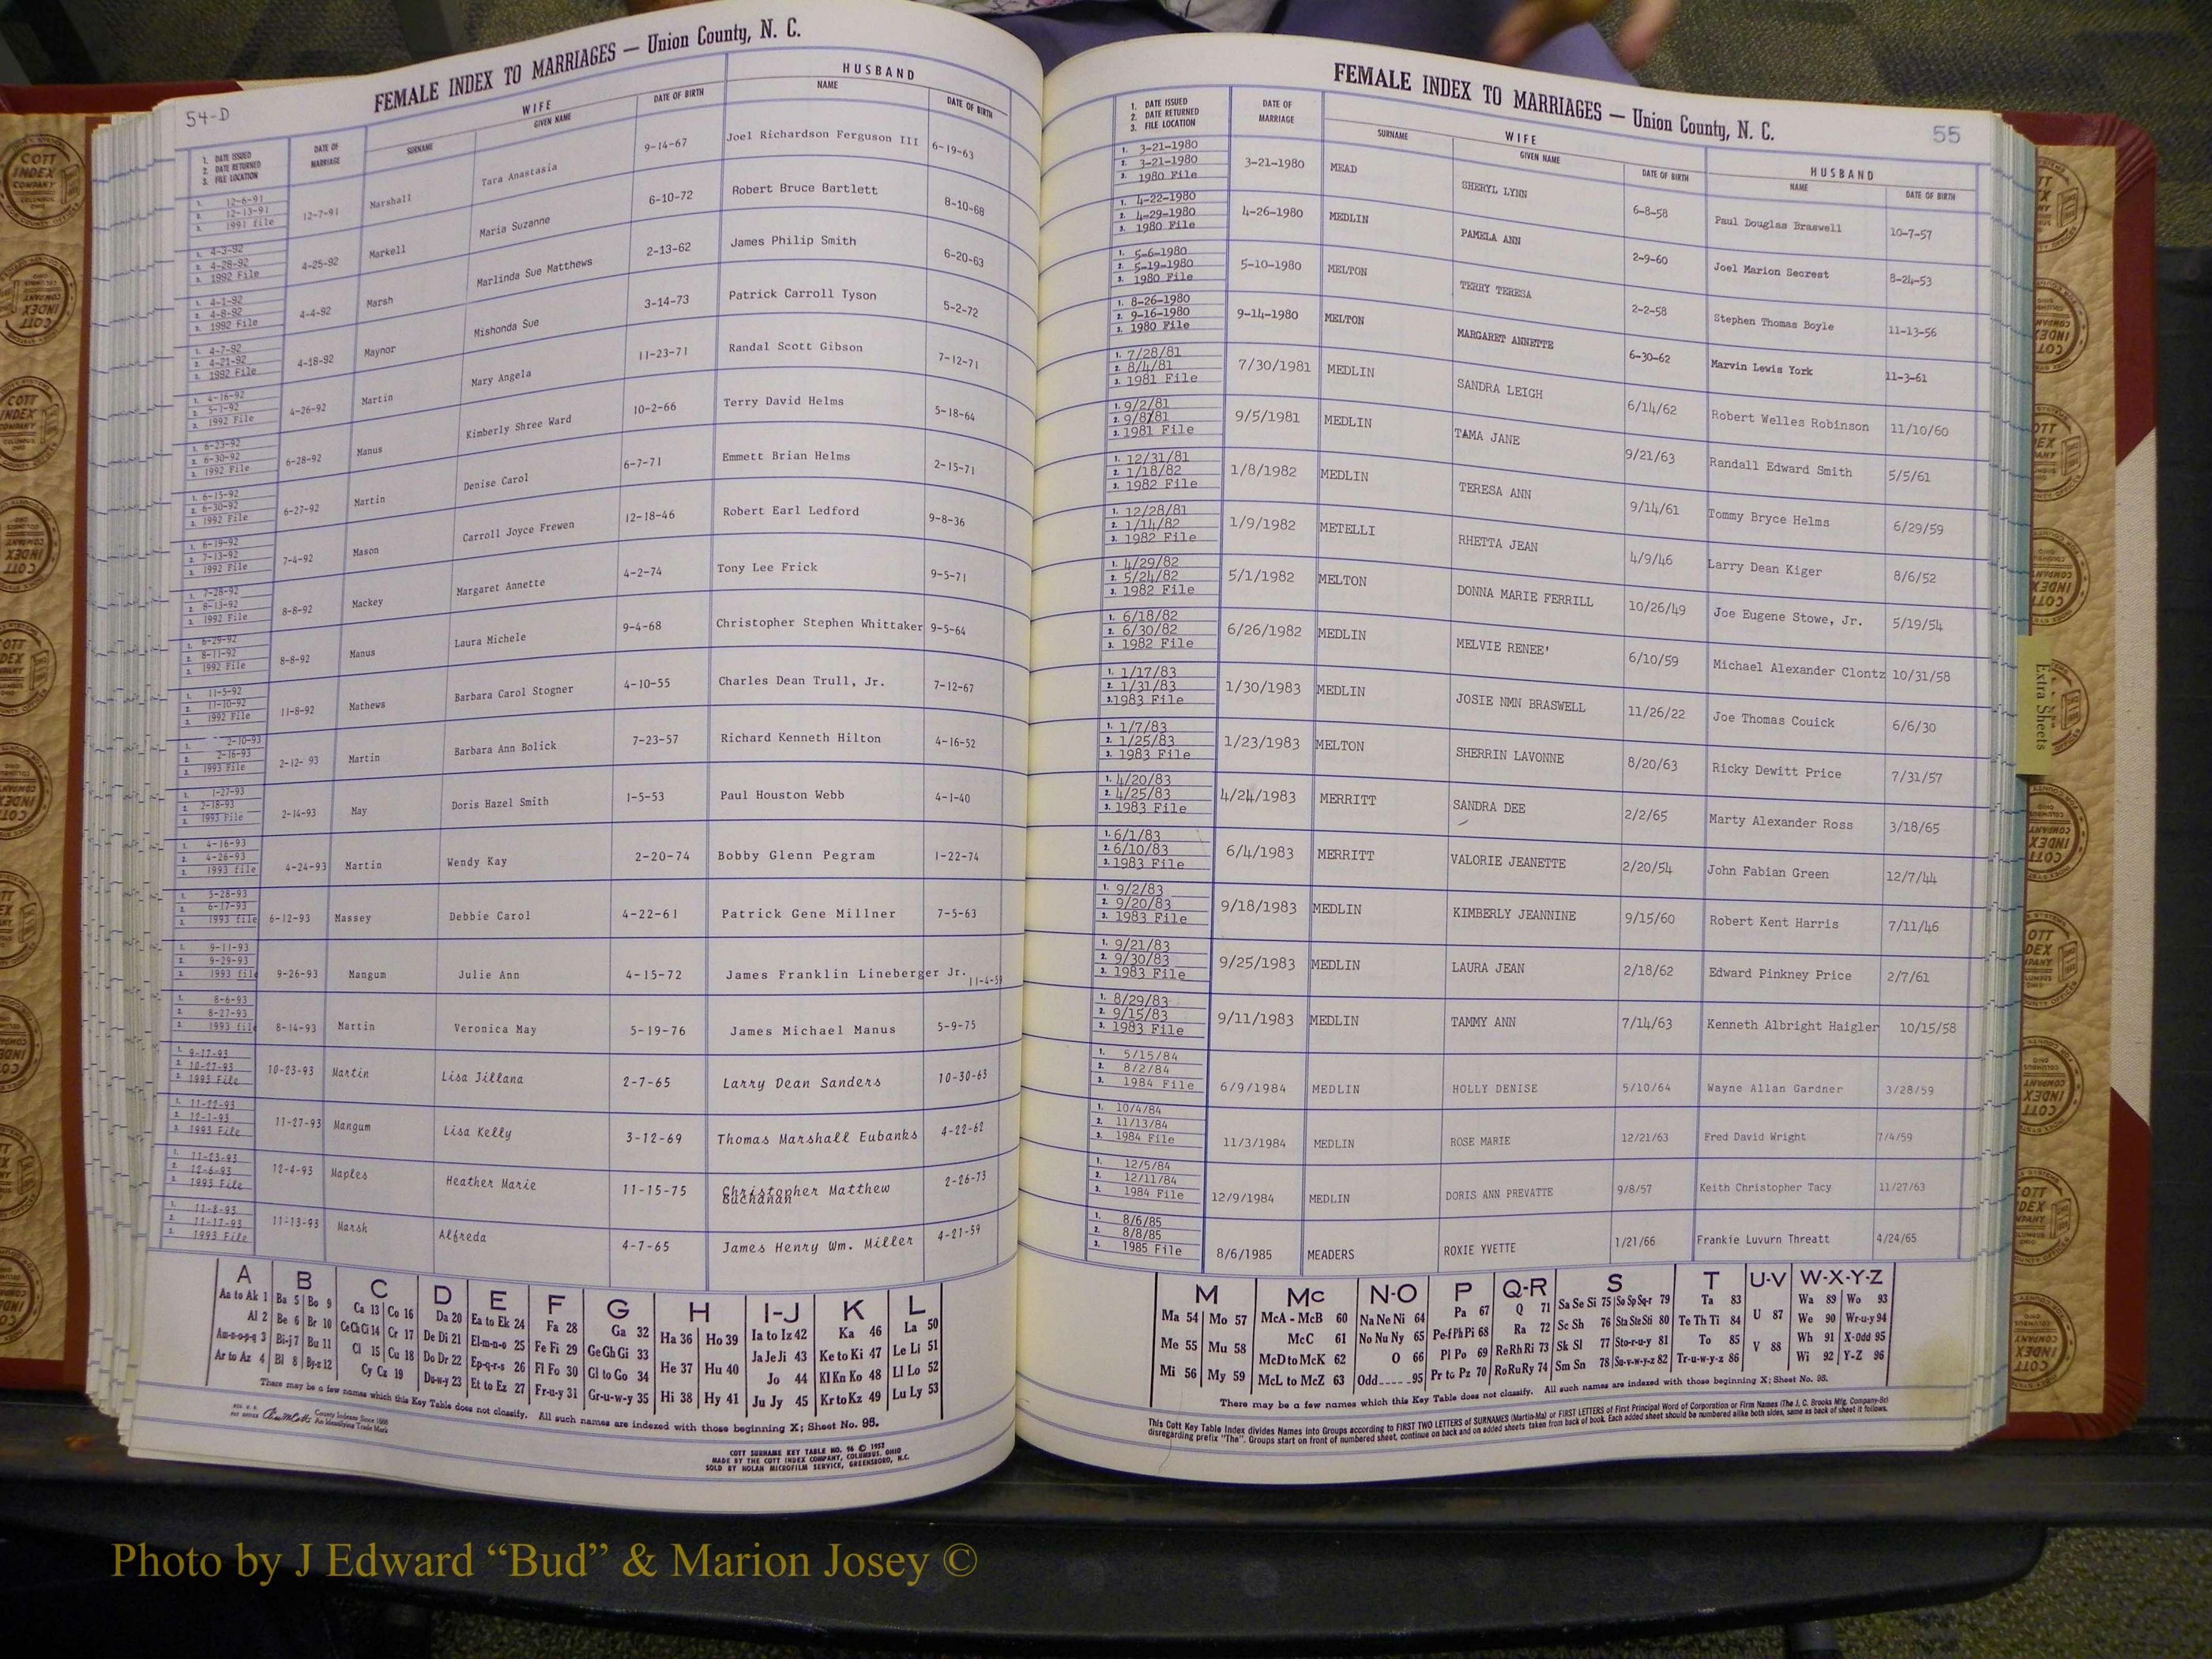 54-D
FEMALE INDEX TO MARRIAGES — Union County, N. C.
1. DATE ISSUED 2. DATE RETURNED 3. FILE LOCATION DATE OF MARRIAGE WIFE SURNAME GIVEN NAME DATE OF BIRTH HUSBAND NAME DATE OF BIRTH
1. 12-6-91 2. 12-13-91 3. 1991 file 12-7-91 Marshall Tara Anastasia 9-14-67 Joel Richardson Ferguson III 6-19-63
1. 4-3-92 2. 4-28-92 3. 1992 File 4-25-92 Markell Maria Suzanne 6-10-72 Robert Bruce Bartlett 8-10-68
1. 4-1-92 2. 4-8-92 3. 1992 File 4-4-92 Marsh Marlinda Sue Matthews 2-13-62 James Philip Smith 6-20-63
1. 4-7-92 2. 4-21-92 3. 1992 File 4-18-92 Maynor Mishonda Sue 3-14-73 Patrick Carroll Tyson 5-2-72
1. 4-16-92 2. 5-1-92 3. 1992 File 4-26-92 Martin Mary Angela 11-23-71 Randal Scott Gibson 7-12-71
1. 6-23-92 2. 6-30-92 3. 1992 File 6-28-92 Manus Kimberly Shree Ward 10-2-66 Terry David Helms 5-18-64
1. 6-15-92 2. 6-30-92 3. 1992 File 6-27-92 Martin Denise Carol 6-7-71 Emmett Brian Helms 2-15-71
1. 6-19-92 2. 7-13-92 3. 1992 File 7-4-92 Mason Carroll Joyce Frewen 12-18-46 Robert Earl Ledford 9-8-36
1. 7-28-92 2. 8-13-92 3. 1992 File 8-8-92 Mackey Margaret Annette 4-2-74 Tony Lee Frick 9-5-71
1. 6-29-92 2. 8-11-92 3. 1992 File 8-8-92 Manus Laura Michele 9-4-68 Christopher Stephen Whittaker 9-5-64
1. 11-5-92 2. 11-10-92 3. 1992 File 11-8-92 Mathews Barbara Carol Stogner 4-10-55 Charles Dean Trull, Jr. 7-12-67
1. 2-10-93 2. 2-16-93 3. 1993 File 2-12-93 Martin Barbara Ann Bolick 7-23-57 Richard Kenneth Hilton 4-16-52
1. 1-27-93 2. 2-18-93 3. 1993 File 2-14-93 May Doris Hazel Smith 1-5-53 Paul Houston Webb 4-1-40
1. 4-16-93 2. 4-26-93 3. 1993 file 4-24-93 Martin Wendy Kay 2-20-74 Bobby Glenn Pegram 1-22-74
1. 5-28-93 2. 6-17-93 3. 1993 file 6-12-93 Massey Debbie Carol 4-22-61 Patrick Gene Millner 7-5-63
1. 9-11-93 2. 9-29-93 3. 1993 file 9-26-93 Mangum Julie Ann 4-15-72 James Franklin Lineberger Jr. 11-4-59
1. 8-6-93 2. 8-27-93 3. 1993 file 8-14-93 Martin Veronica May 5-19-76 James Michael Manus 5-9-75
1. 9-17-93 2. 10-27-93 3. 1993 File 10-23-93 Martin Lisa Jillana 2-7-65 Larry Dean Sanders 10-30-63
1. 11-22-93 2. 12-1-93 3. 1993 File 11-27-93 Mangum Lisa Kelly 3-12-69 Thomas Marshall Eubanks 4-22-62
1. 11-23-93 2. 12-6-93 3. 1993 File 12-4-93 Maples Heather Marie 11-15-75 Christopher Matthew Buchanan 2-26-73
1. 11-8-93 2. 11-17-93 3. 1993 File 11-13-93 Marsk Alfreda 4-7-65 James Henry Wm. Miller 4-21-59
A B C D E F G H I-J K L
Aa to Ak 1 Ba 5 Bo 9 Ca 13 Co 16 Da 20 Ea to Ek 24 Fa 28 Ga 32 Ha 36 Ho 39 Ia to Iz 42 Ka 46 La 50
Al 2 Be 6 Br 10 Ce Ch Ci 14 Cr 17 De Di 21 El-m-n-o 25 Fe Fi 29 Ge Gh Gi 33 Ja Je Ji 43 Ke to Ki 47 Le Li 51
Am-n-o-p-q 3 Bi-j 7 Bu 11 Cl 15 Cu 18 Do Dr 22 Ep-q-r-s 26 Fl Fo 30 Gl to Go 34 He 37 Hu 40 Jo 44 Kl Kn Ko 48 Ll Lo 52
Ar to Az 4 Bl 8 By-z 12 Cy Cz 19 Du-w-y 23 Et to Ez 27 Fr-u-y 31 Gr-u-w-y 35 Hi 38 Hy 41 Ju Jy 45 Kr to Kz 49 Lu Ly 53
There may be a few names which this Key Table does not classify. All such names are indexed with those beginning X; Sheet No. 95.
County Indexes Since 1888
An Identifying Trade Mark
COTT SURNAME KEY TABLE NO. 96 © 1957
MADE BY THE COTT INDEX COMPANY, COLUMBUS, OHIO
SOLD BY NOLAN MICROFILM SERVICE, GREENSBORO, N.C.
FEMALE INDEX TO MARRIAGES — Union County, N. C.
55
1. DATE ISSUED 2. DATE RETURNED 3. FILE LOCATION DATE OF MARRIAGE WIFE SURNAME GIVEN NAME DATE OF BIRTH HUSBAND NAME DATE OF BIRTH
1. 3-21-1980 2. 3-21-1980 3. 1980 File 3-21-1980 MEAD SHERYL LYNN 6-8-58 Paul Douglas Braswell 10-7-57
1. 4-22-1980 2. 4-29-1980 3. 1980 File 4-26-1980 MEDLIN PAMELA ANN 2-9-60 Joel Marion Secrest 8-24-53
1. 5-6-1980 2. 5-19-1980 3. 1980 File 5-10-1980 MELTON TERRY TERESA 2-2-58 Stephen Thomas Boyle 11-13-56
1. 8-26-1980 2. 9-16-1980 3. 1980 File 9-14-1980 MELTON MARGARET ANNETTE 6-30-62 Marvin Lewis York 11-3-61
1. 7/28/81 2. 8/4/81 3. 1981 File 7/30/1981 MEDLIN SANDRA LEIGH 6/14/62 Robert Welles Robinson 11/10/60
1. 9/2/81 2. 9/8/81 3. 1981 File 9/5/1981 MEDLIN TAMA JANE 9/21/63 Randall Edward Smith 5/5/61
1. 12/31/81 2. 1/18/82 3. 1982 File 1/8/1982 MEDLIN TERESA ANN 9/14/61 Tommy Bryce Helms 6/29/59
1. 12/28/81 2. 1/14/82 3. 1982 File 1/9/1982 METELLI RHETTA JEAN 4/9/46 Larry Dean Kiger 8/6/52
1. 4/29/82 2. 5/24/82 3. 1982 File 5/1/1982 MELTON DONNA MARIE FERRILL 10/26/49 Joe Eugene Stowe, Jr. 5/19/54
1. 6/18/82 2. 6/30/82 3. 1982 File 6/26/1982 MEDLIN MELVIE RENEE' 6/10/59 Michael Alexander Clontz 10/31/58
1. 1/17/83 2. 1/31/83 3. 1983 File 1/30/1983 MEDLIN JOSIE NMN BRASWELL 11/26/22 Joe Thomas Couick 6/6/30
1. 1/7/83 2. 1/25/83 3. 1983 File 1/23/1983 MELTON SHERRIN LAVONNE 8/20/63 Ricky Dewitt Price 7/31/57
1. 4/20/83 2. 4/25/83 3. 1983 File 4/24/1983 MERRITT SANDRA DEE 2/2/65 Marty Alexander Ross 3/18/65
1. 6/1/83 2. 6/10/83 3. 1983 File 6/4/1983 MERRITT VALORIE JEANETTE 2/20/54 John Fabian Green 12/7/44
1. 9/2/83 2. 9/20/83 3. 1983 File 9/18/1983 MEDLIN KIMBERLY JEANNINE 9/15/60 Robert Kent Harris 7/11/46
1. 9/21/83 2. 9/30/83 3. 1983 File 9/25/1983 MEDLIN LAURA JEAN 2/18/62 Edward Pinkney Price 2/7/61
1. 8/29/83 2. 9/15/83 3. 1983 File 9/11/1983 MEDLIN TAMMY ANN 7/14/63 Kenneth Albright Haigler 10/15/58
1. 5/15/84 2. 8/2/84 3. 1984 File 6/9/1984 MEDLIN HOLLY DENISE 5/10/64 Wayne Allan Gardner 3/28/59
1. 10/4/84 2. 11/13/84 3. 1984 File 11/3/1984 MEDLIN ROSE MARIE 12/21/63 Fred David Wright 7/4/59
1. 12/5/84 2. 12/11/84 3. 1984 File 12/9/1984 MEDLIN DORIS ANN PREVATTE 9/8/57 Keith Christopher Tacy 11/27/63
1. 8/6/85 2. 8/8/85 3. 1985 File 8/6/1985 MEADERS ROXIE YVETTE 1/21/66 Frankie Luvurn Threatt 4/24/65
M Mc N-O P Q-R S T U-V W-X-Y-Z
Ma 54 Mo 57 McA - McB 60 Na Ne Ni 64 Pa 67 Q 71 Sa Se Si 75 So Sp Sq-r 79 Ta 83 U 87 Wa 89 Wo 93
Me 55 Mu 58 McC 61 No Nu Ny 65 Pe-f Ph Pi 68 Ra 72 Sc Sh 76 Sta Ste Sti 80 Te Th Ti 84 We 90 Wr-u-y 94
McD to McK 62 O 66 Pl Po 69 Re Rh Ri 73 Sk Sl 77 Sto-r-u-y 81 To 85 V 88 Wh 91 X-Odd 95
Mi 56 My 59 McL to McZ 63 Odd 95 Pr to Pz 70 Ro Ru Ry 74 Sm Sn 78 Su-v-w-y-z 82 Tr-u-w-y-z 86 Wi 92 Y-Z 96
There may be a few names which this Key Table does not classify. All such names are indexed with those beginning X; Sheet No. 95.
This Cott Key Table Index divides Names into Groups according to FIRST TWO LETTERS of SURNAMES (Martin-Ma) or FIRST LETTERS of First Principal Word of Corporation or Firm Names (The J. C. Brooks Mfg. Company-Br)
disregarding prefix "The". Groups start on front of numbered sheet, continue on back and on added sheets taken from back of book. Each added sheet should be numbered alike both sides, same as back of sheet it follows.
Extra Sheets
COTT INDEX COMPANY COLUMBUS OHIO
Photo by J Edward “Bud” & Marion Josey ©